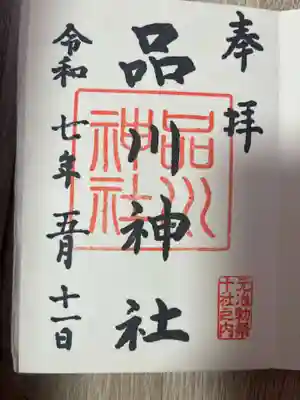 奉拝
品川神社
品川神社
元准勅祭
十社之内
令和七年五月十一日